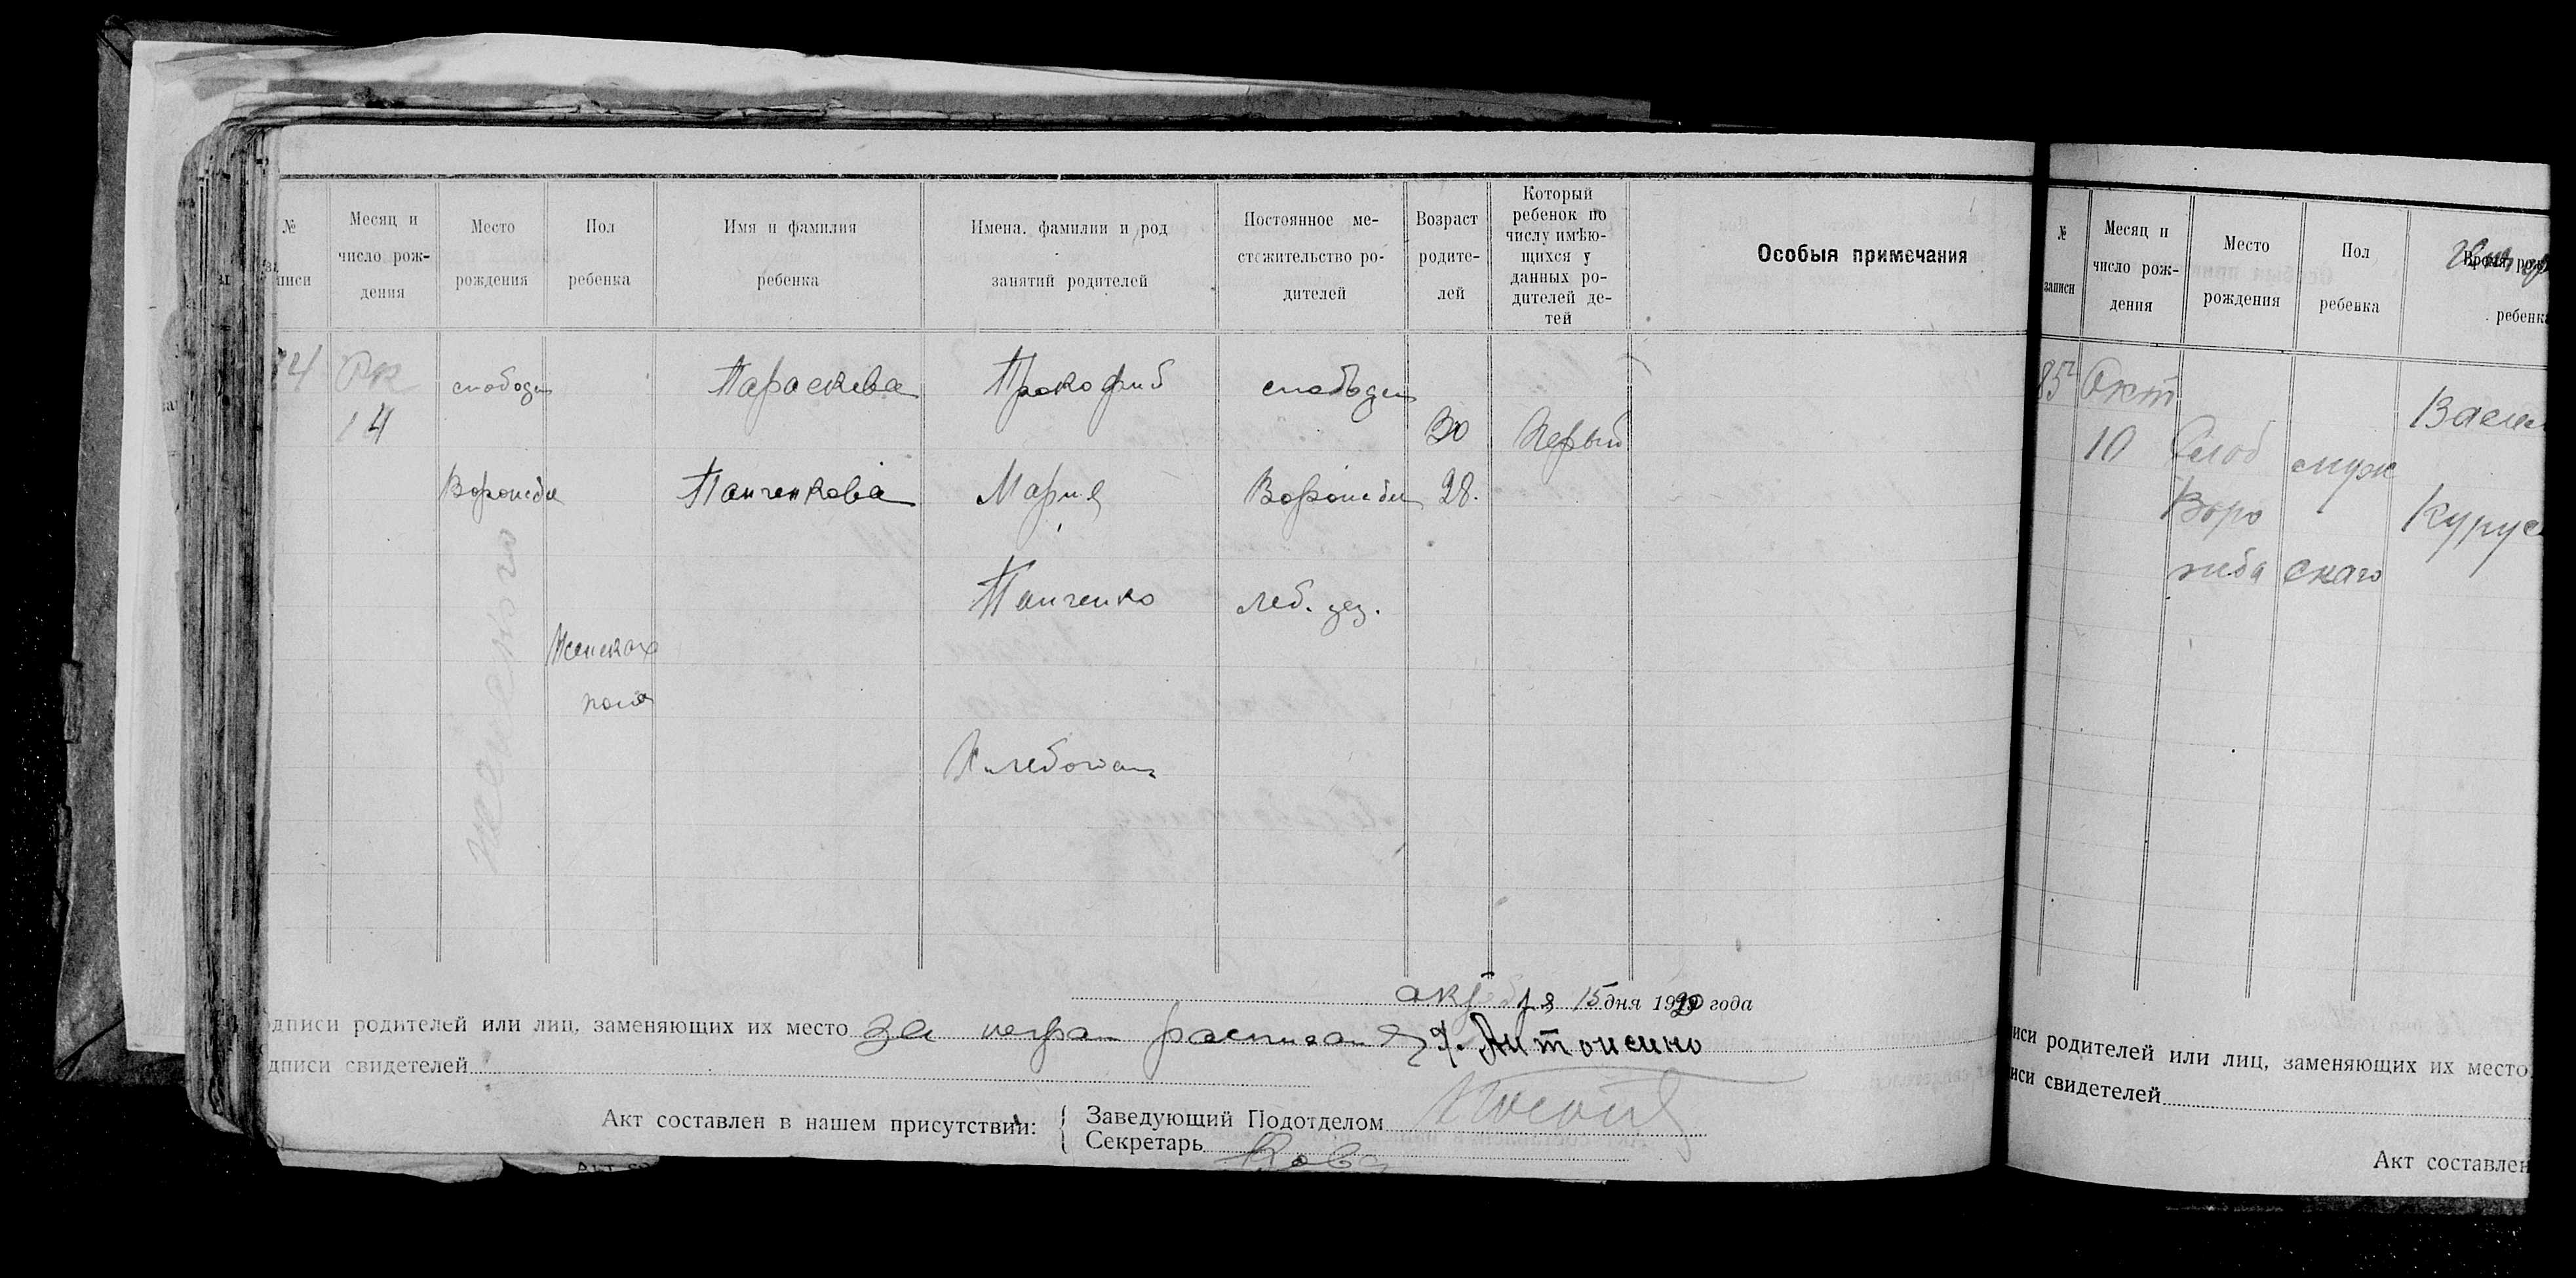 №
записи
Месяц и
число рож-
дения
Место
рождения
Пол
ребенка
Имя и фамилия
ребенка
Имена, фамилии и род
занятий родителей
Постоянное ме-
стожительство ро-
дителей
Возраст
родите-
лей
Который
ребенок по
числу имѣю-
щихся у
данных ро-
дителей де-
тей
Особыя примечания
84
Ок
14
слободы
Ворожбы
женского
Женская
пола
Параскева
Панченкова
Прокофий
Мария
Панченко
Хлебопаш
слободы
Ворожбы
Леб. уез.
30
28.
Первый
октября 15 дня 1920 года
одписи родителей или лиц, заменяющих их место за негра расписался Я. Антоненко
дписи свидетелей
Акт составлен в нашем присутствии:
Заведующий Подотделом
Секретарь
№
записи
Месяц и
число рож-
дения
Место
рождения
Пол
ребенка
ребенка
85
Окт
10
Слоб
Воро
жба
муж
скаго
Васил
Курус
иси родителей или лиц, заменяющих их место
иси свидетелей
Акт составлен